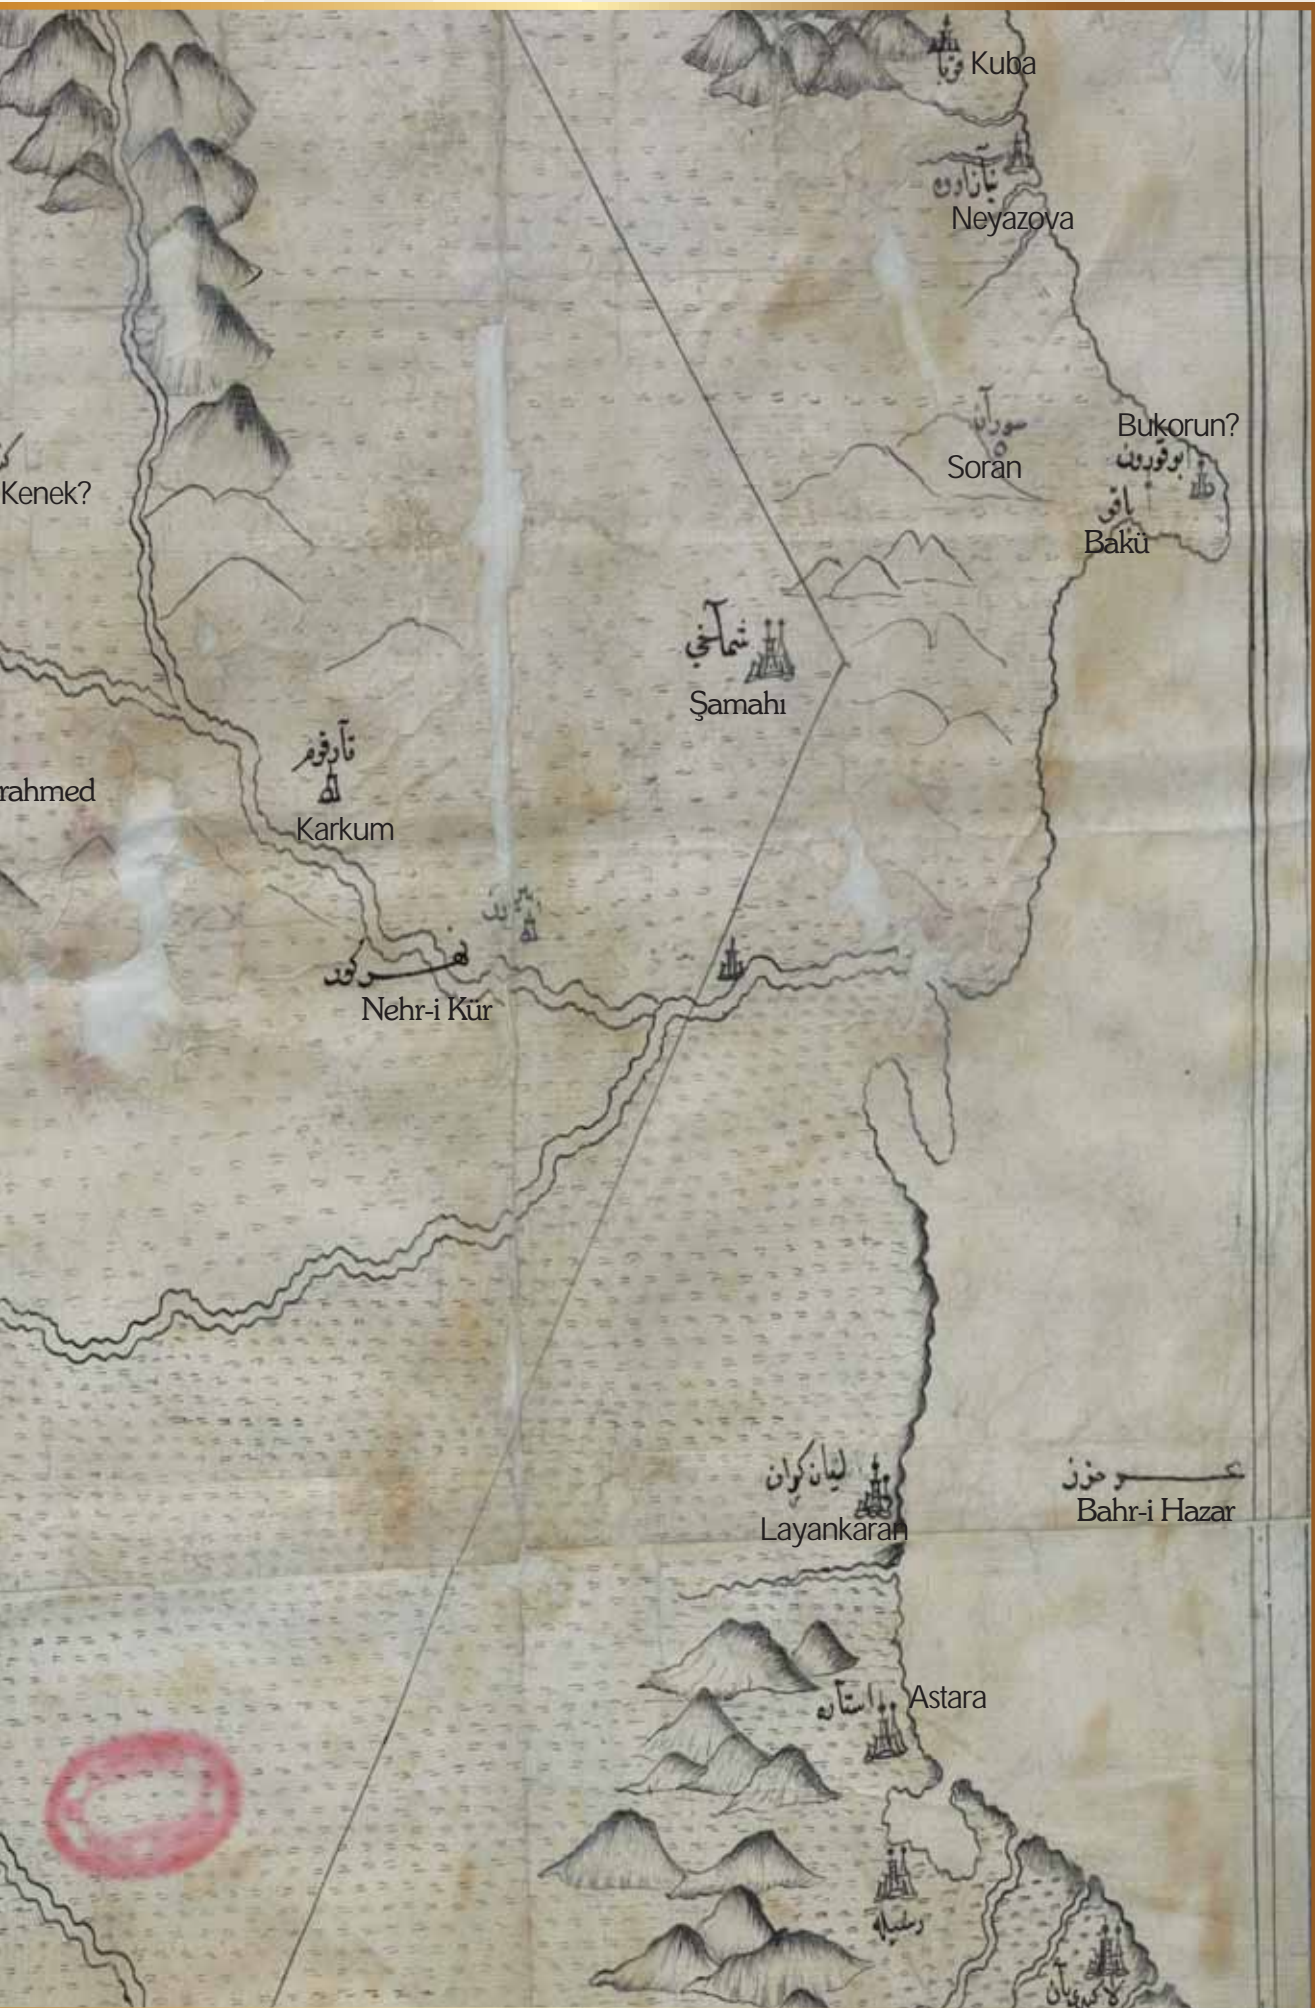 قوبا
Kuba
نیآزاووه
Neyazova
سورآن
Soran
Bukorun?
بوقورون
باقی
Bakü
Kenek?
شماخی
Şamahı
قآرقوم
Karkum
rahmed
نهر کور
Nehr-i Kür
لیان کران
Layankaran
بحر حزز
Bahr-i Hazar
استآره
Astara